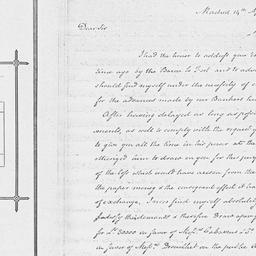 Madrid 14th
Dear Sir
I had the honor to address you
time ago by the Baron le Fort and to
should find myself under the necessity of
for the advances made by our Bankers
After having delayed as long as
aments, as well to comply with the request
to give you all the time in his power at the
authorized him to draw on you for this
of the loss which would have arisen from the
the paper money & the consequent effect it had
of exchange, I now find myself absolutely
satisfy this demand & therefore Draw upon
for in favor of Messrs. Cabarrus &
in favor of Messrs. Drouilhet on the public